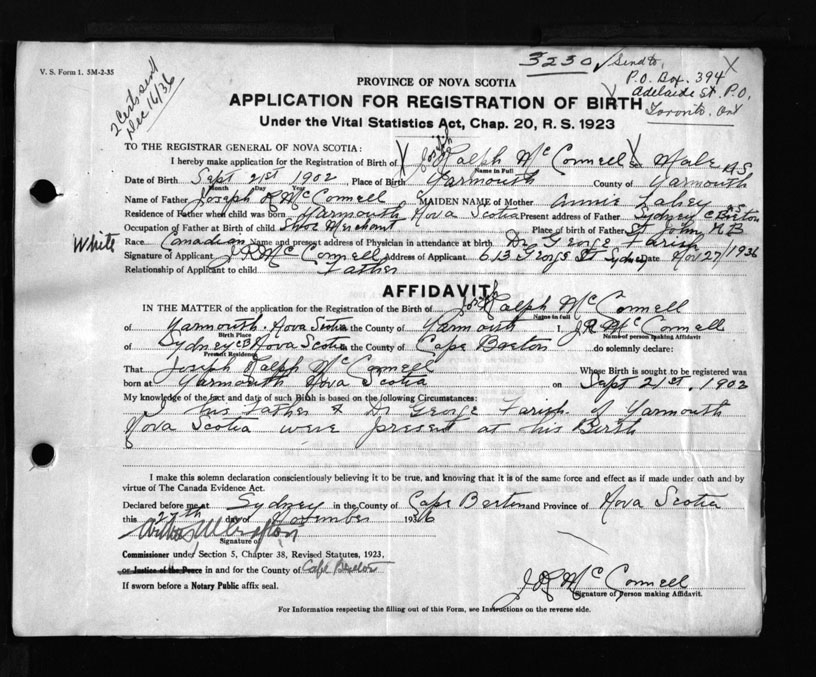 3230 ✓ Send to X
V. S. Form 1. 5M-2-35
P.O. Box. 394
2 Certs sent
Dec 16/36
PROVINCE OF NOVA SCOTIA
Adelaide St. P.O.
APPLICATION FOR REGISTRATION OF BIRTH
Toronto. Ont
Under the Vital Statistics Act, Chap. 20, R. S. 1923
TO THE REGISTRAR GENERAL OF NOVA SCOTIA:
I hereby make application for the Registration of Birth of X Joseph Ralph McConnell X Sex Male
Name in Full
Date of Birth Sept 21st 1902 Place of Birth Yarmouth County of Yarmouth N.S
Month Day Year
Name of Father Joseph R McConnell MAIDEN NAME of Mother Annie Lahey
Residence of Father when child was born Yarmouth Nova Scotia Present address of Father Sydney C Breton N.S
Occupation of Father at Birth of child Shoe Merchant Place of birth of Father St John N B
White Race Canadian Name and present address of Physician in attendance at birth Dr George Farish
Signature of Applicant J R McConnell Address of Applicant 613 George St Sydney Date Nov 27/1936
Relationship of Applicant to child Father
AFFIDAVIT
IN THE MATTER of the application for the Registration of the Birth of Joseph Ralph McConnell
Name in full
of Yarmouth. Nova Scotia in the County of Yarmouth I, J R McConnell
Birth Place Name of person making Affidavit
of Sydney CB Nova Scotia in the County of Cape Breton do solemnly declare:
Present Residence
That Joseph Ralph McConnell Whose Birth is sought to be registered was
born at Yarmouth Nova Scotia on Sept 21st. 1902
My knowledge of the fact and date of such Birth is based on the following Circumstances:
I his Father & Dr George Farish of Yarmouth
Nova Scotia were present at his Birth
I make this solemn declaration conscientiously believing it to be true, and knowing that it is of the same force and effect as if made under oath and by
virtue of The Canada Evidence Act.
Declared before me at Sydney in the County of Cape Breton and Province of Nova Scotia
this 27th day of November 1936
Signature of
Commissioner under Section 5, Chapter 38, Revised Statutes, 1923,
or Justice of the Peace in and for the County of Cape Breton
If sworn before a Notary Public affix seal.
J R McConnell
Signature of Person making Affidavit.
For Information respecting the filling out of this Form, see Instructions on the reverse side.